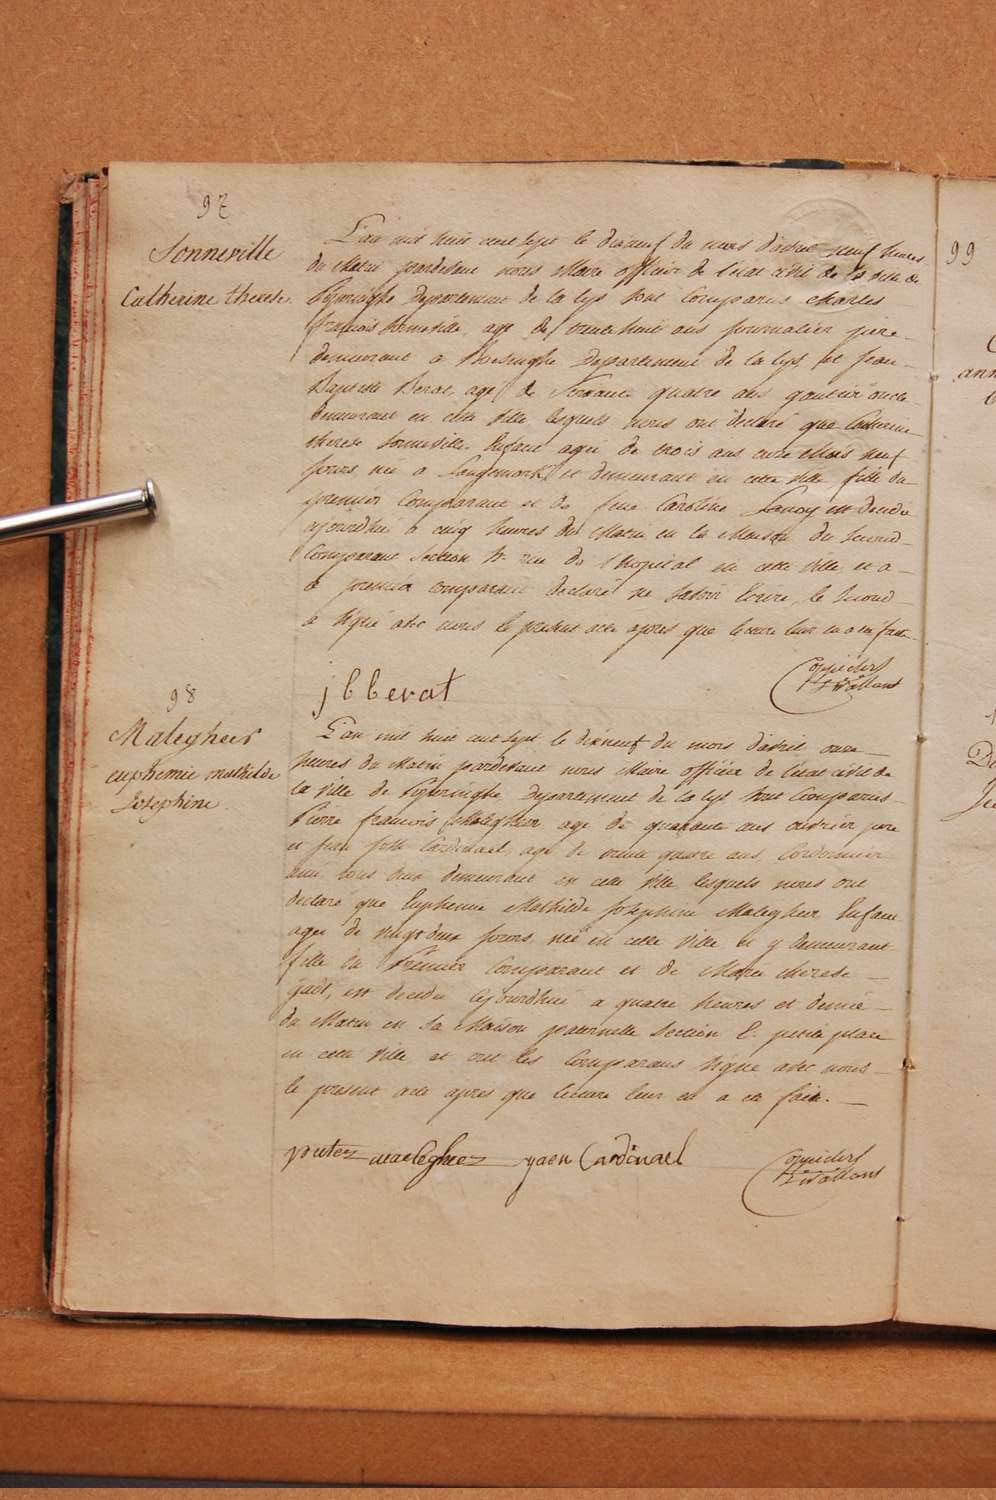 97
Sonneville
Catherine therese.
L'an mil huit cent sept le dixneuf du mois d'avril neuf heures
du Matin pardevant nous Maire officier de l'état civil de la ville de
Poperinghe Departement de la Lys sont Comparus Charles
francois Sonneville agé de trente huit ans journalier pere
demeurant a Boesinghe Departement de la Lys, et Jean
Baptiste Berat, agé de Soixante quatre ans oncle
demeurant en cette ville lesquels nous ont declaré que Catherine
therese Sonneville Enfant agée de trois ans onze Mois neuf
jours née a Langemark et demeurant en cette ville fille du
premier Comparant et de feue Caroline est decedée
ajourdhui à cinq heures du Matin en la Maison du second
Comparant Section rue de l'hopital en cette ville et a
le premier comparant declaré ne savoir Ecrire, le second
a signé avec nous le present acte apres que lecture leur en a eté faite
j b berat
98
Malegheer
euphemie mathilde
Josephine
L'an mil huit cent sept le dixneuf du mois d'avril onze
heures du Matin pardevant nous Maire officier de l'état civil de
la ville de Poperinghe Departement de la Lys sont Comparus
Pierre francois Malegheer agé de quarante ans ouvrier pere
et jean Cardinael, agé de trente quatre ans, Cordonnier
ami tous deux demeurant en cette ville lesquels nous ont
declaré que Euphemie Mathilde Josephine Malegheer Enfant
agée de vingt deux jours, née en cette ville et y demeurant
fille du Premier Comparant et de Marie therese
est decedée cejourdhui a quatre heures et demie
du Matin en sa Maison paternelle Section E. petite place
en cette ville et ont les Comparans signé avec nous
le present acte apres que lecture leur en a eté faite.
maeleghez yaen Cardinael
99